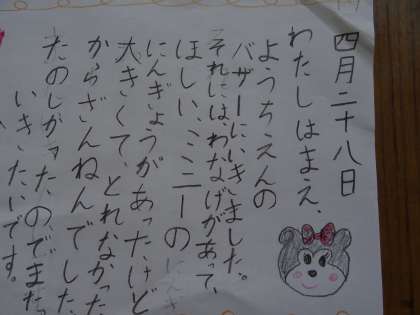 四月二十八日
わたしはまえ、
ようちえんの
バザーにいきました。
それには、わなげがあって、
ほしい、ミニーの
にんぎょうがあったけど
大きくて、とれなかった
からざんねんでした
たのしかったのでまた
いきたいです。